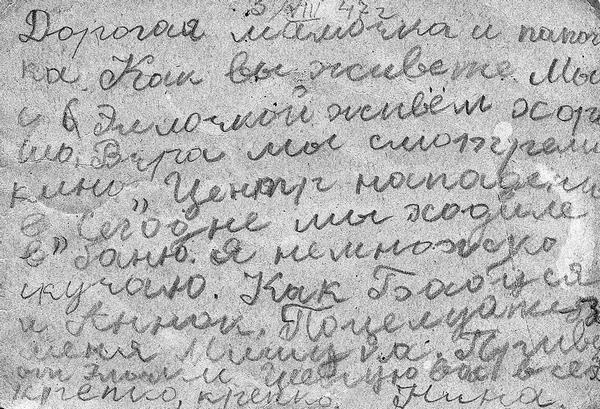 3 VIII 42 г
Дорогая мамочка и папоч
ка. Как вы живете. Мы
с Эллочкой живём хоро
шо. Вчера мы смотрели
кино „Центр нападени
я" Сегодне мы ходиле
в „баню. Я немножко
скучаю. Как Бабуся
и Аннок. Поцелуйте
меня Мишука.
от Эллы и Целую вас всех
крепко, крепко. Нина.